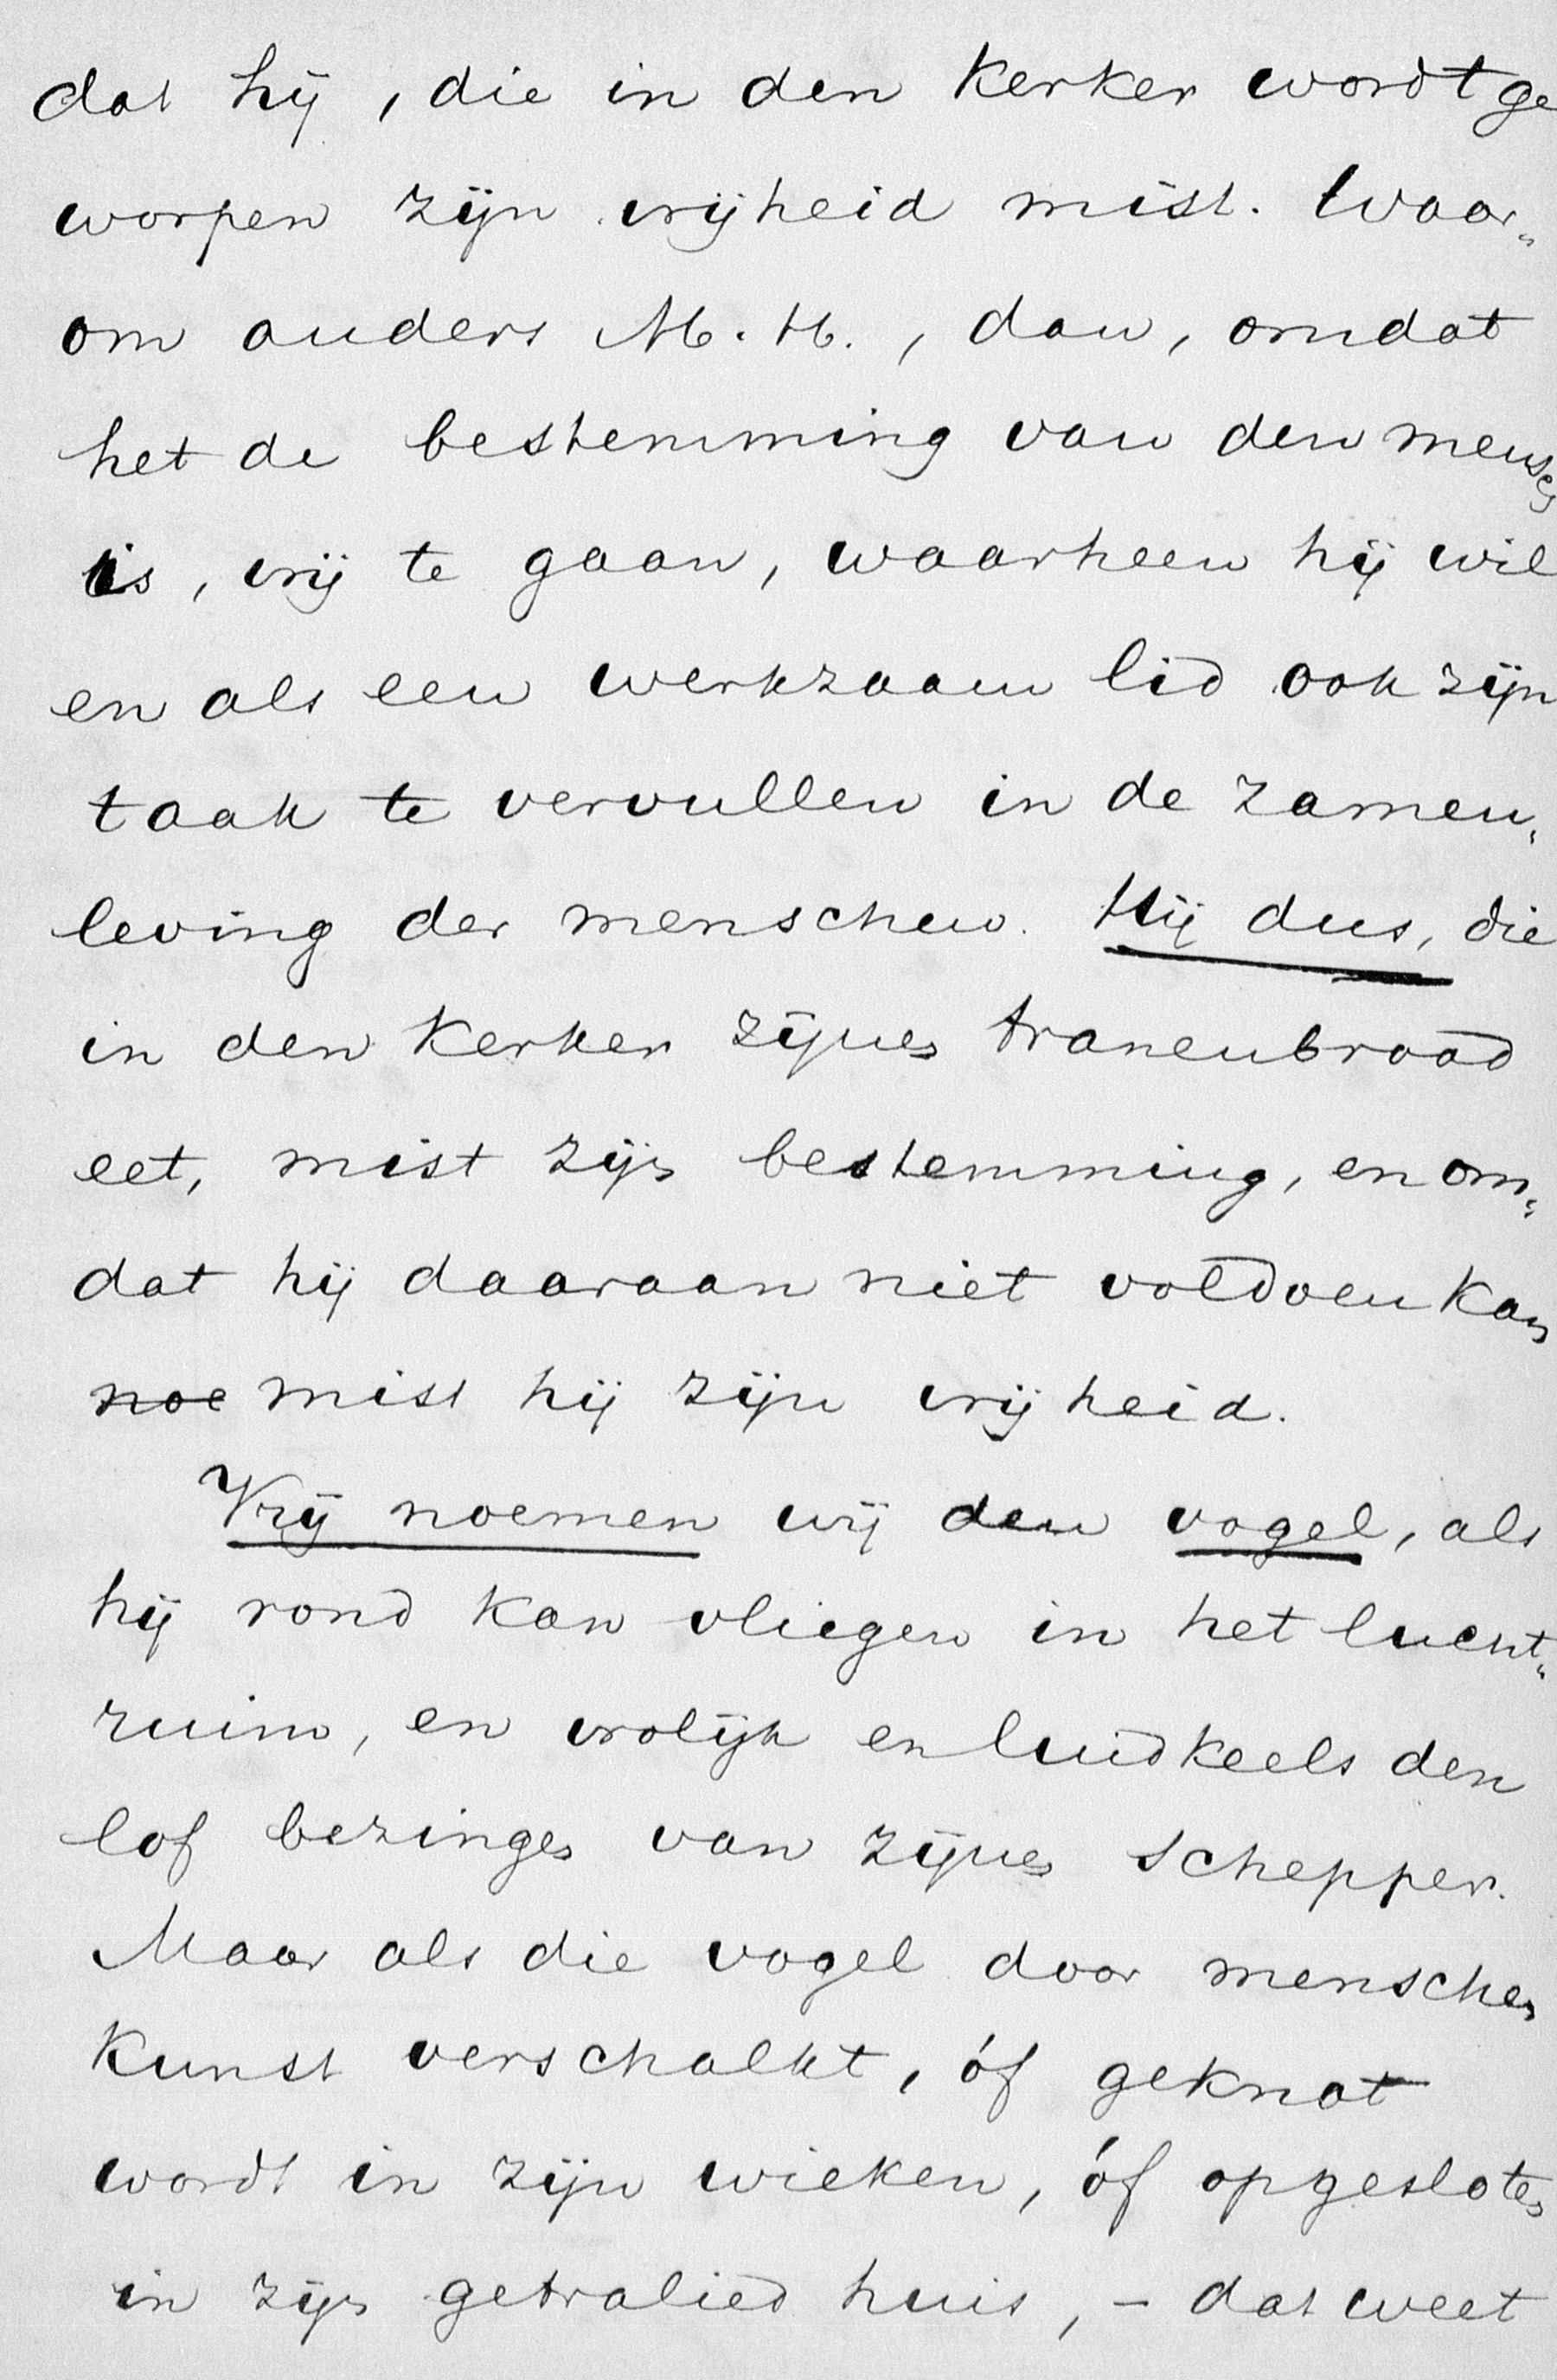 dat hij, die in den kerker wordt ge
worpen zijn vrijheid mist. Waar„
om anders M. H., dan, omdat
het de bestemming van den mensch
is, vrij te gaan, waarheen hij wil
en als een werkzaam lid ook zijn
taak te vervullen in de zamen„
leving der menschen. Hij dus, die
in den kerker zijnen tranenbrood
eet, mist zijn bestemming, en om„
dat hij daaraan niet voldoen kan
noe mist hij zijn vrijheid.
Vrij noemen wij den vogel, als
hij rond kan vliegen in het lucht„
ruim, en vrolijk en luidkeels den
lof bezingen van zijnen schepper.
Maar als die vogel door menschen
kunst verschalkt, óf geknot
wordt in zijn wieken, óf opgesloten
in zijn getralied huis, – dat weet